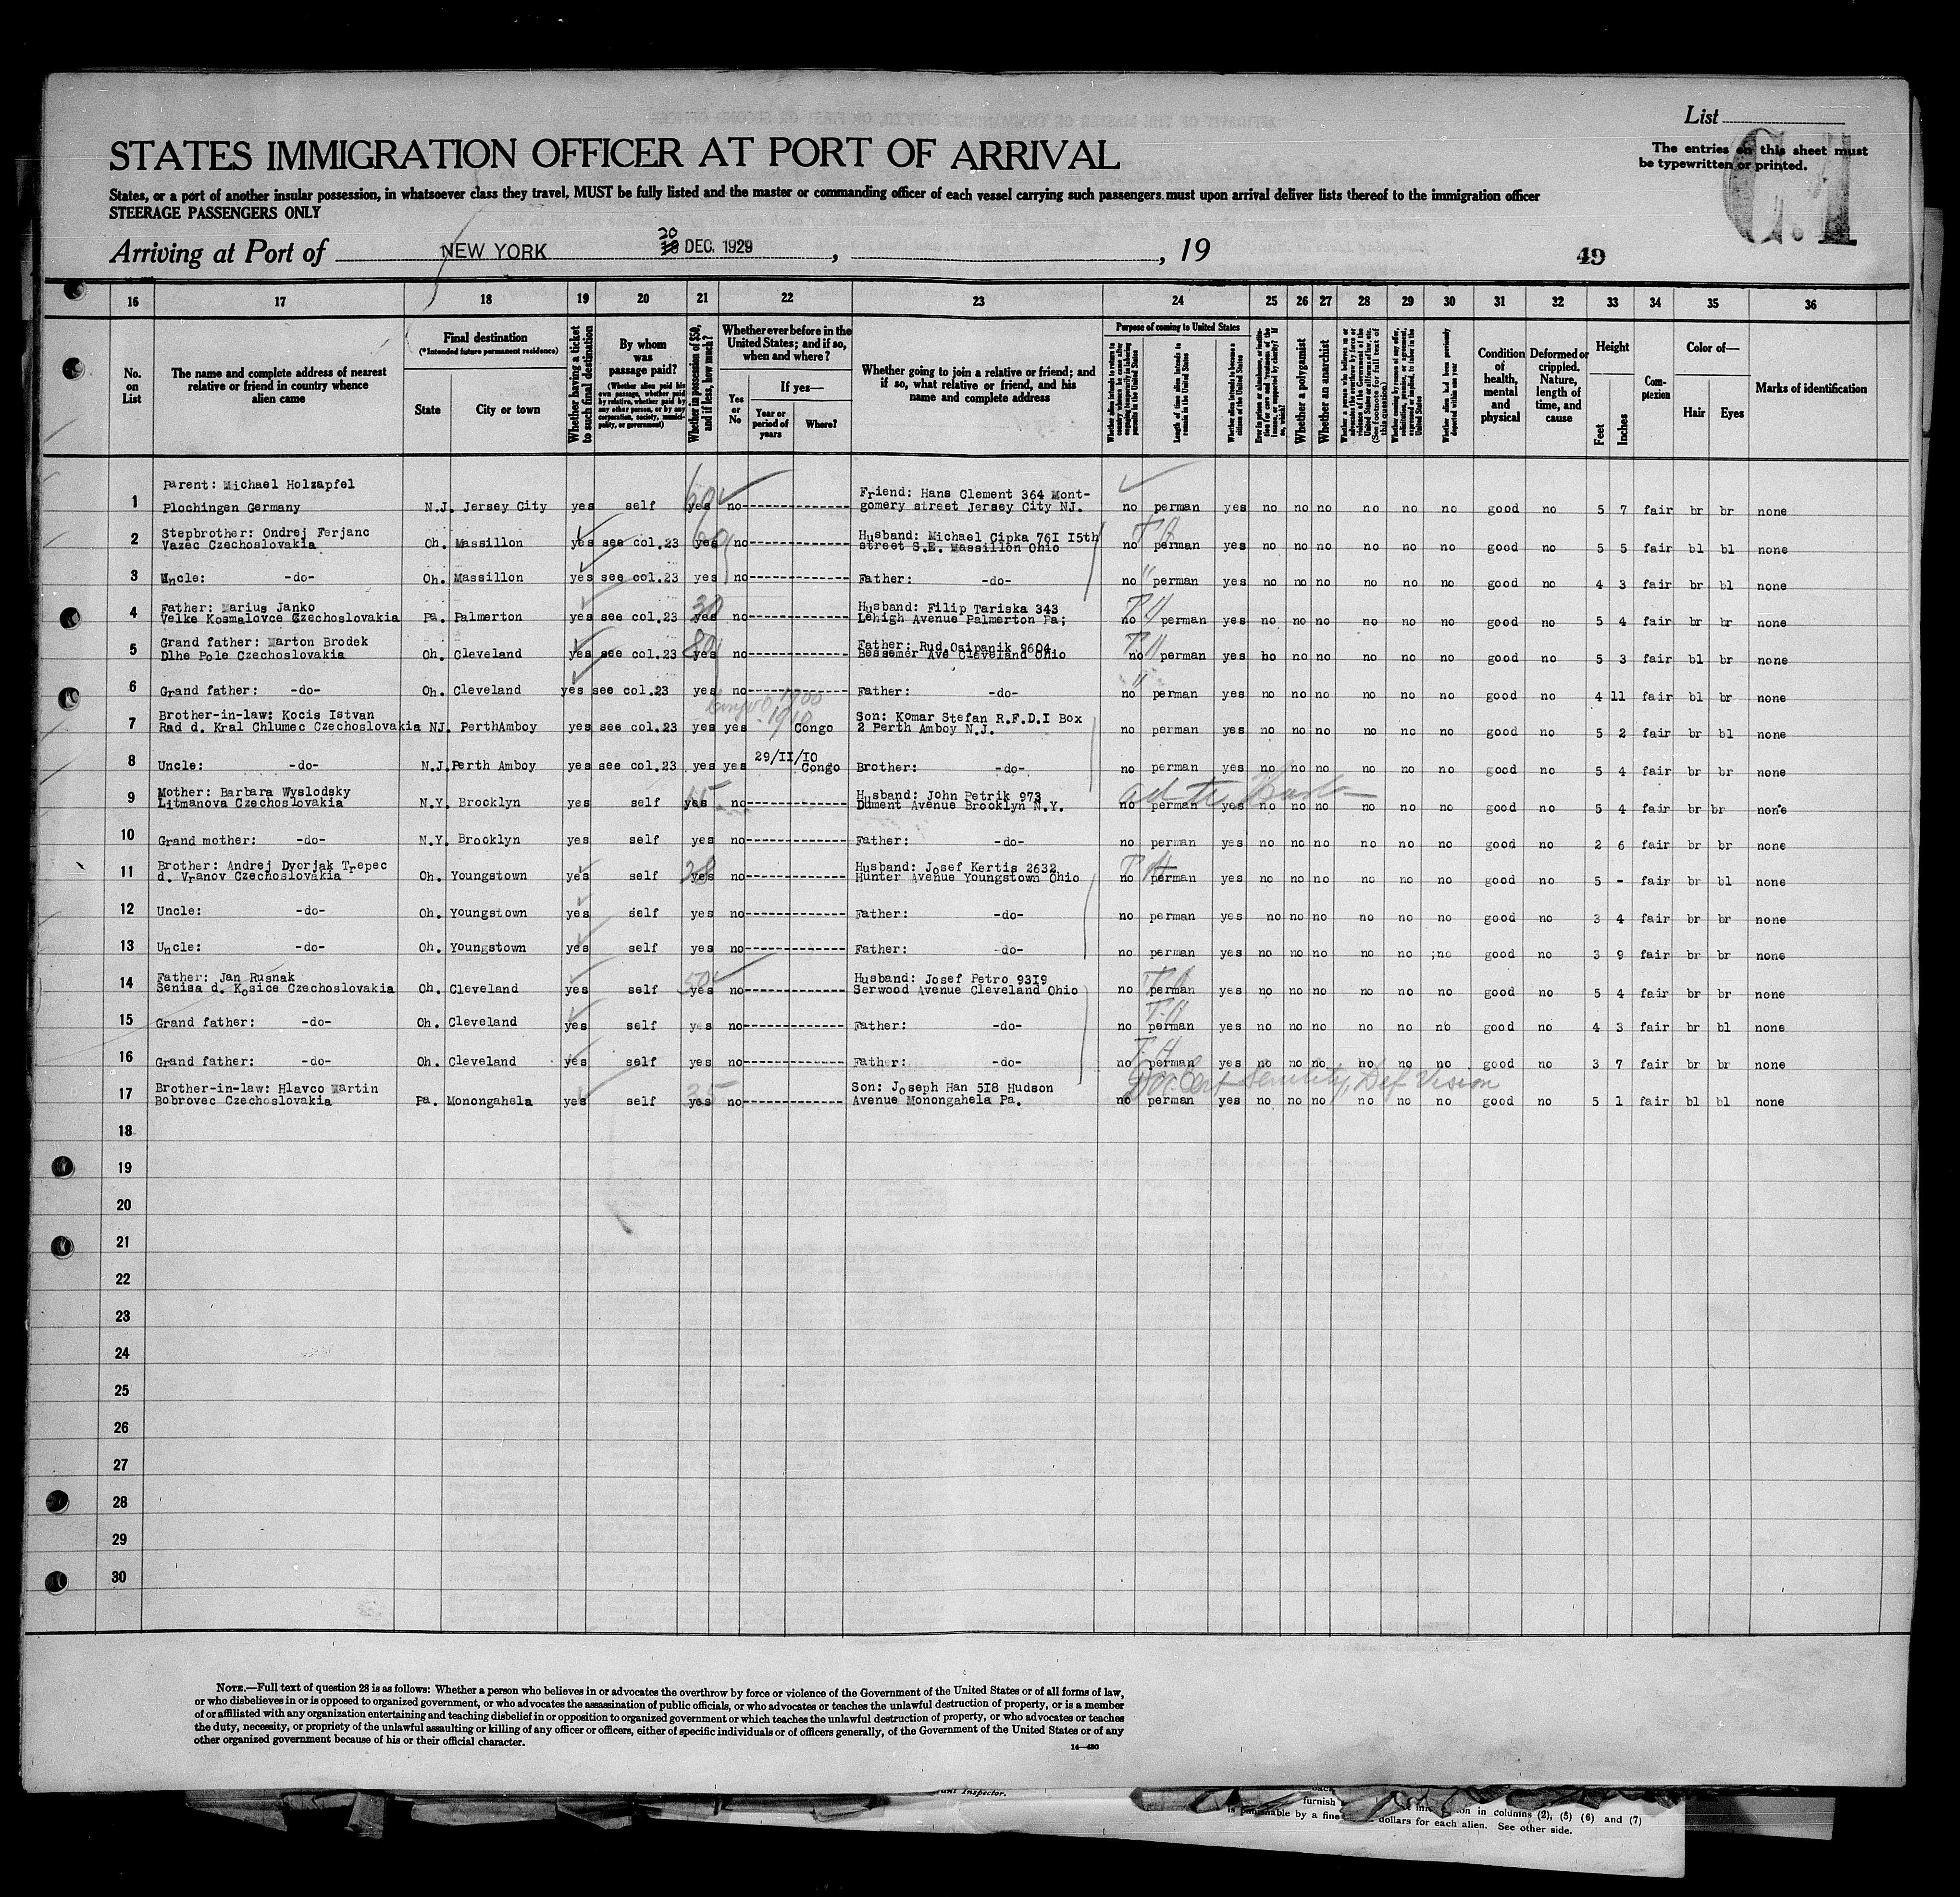 List
The entries on this sheet must
be typewritten or printed.
STATES IMMIGRATION OFFICER AT PORT OF ARRIVAL
States, or a port of another insular possession, in whatsoever class they travel, MUST be fully listed and the master or commanding officer of each vessel carrying such passengers must upon arrival deliver lists thereof to the immigration officer
STEERAGE PASSENGERS ONLY
Arriving at Port of NEW YORK 20 DEC. 1929, , 19 49
16 17 18 19 20 21 22 23 24 25 26 27 28 29 30 31 32 33 34 35 36
No. on List
The name and complete address of nearest relative or friend in country whence alien came
Final destination
(*Intended future permanent residence)
State
City or town
Whether having a ticket to such final destination
By whom was passage paid?
(Whether alien paid his own passage, whether paid by relative, whether paid by any other person, or by any corporation, society, municipality, or government)
Whether in possession of $50, and if less, how much?
Whether ever before in the United States; and if so, when and where?
Yes or No
If yes—
Year or period of years
Where?
Whether going to join a relative or friend; and if so, what relative or friend, and his name and complete address
Purpose of coming to United States
Length of time alien intends to remain in the United States
Whether alien intends to become a citizen of the United States
Whether a polygamist
Whether an anarchist
Condition of health, mental and physical
Deformed or crippled. Nature, length of time, and cause
Height
Feet
Inches
Complexion
Color of—
Hair
Eyes
Marks of identification
Parent: Michael Holzapfel Friend: Hans Clement 364 Mont-
1 Plochingen Germany N.J. Jersey City yes self yes no gomery street Jersey City NJ. no perman yes no no no no no no good no 5 7 fair br br none
Stepbrother: Ondrej Ferjanc Husband: Michael Cipka 76I I5th
2 Vazec Czechoslovakia Oh. Massillon yes see col.23 yes no street S.E. Massillon Ohio no perman yes no no no no no no good no 5 5 fair bl bl none
3 Uncle: -do- Oh. Massillon yes see col.23 yes no Father: -do- no perman yes no no no no no no good no 4 3 fair br bl none
Father: Marius Janko 30 Husband: Filip Tariska 343
4 Velke Kosmalovce Czechoslovakia Pa. Palmerton yes see col.23 yes no Lehigh Avenue Palmerton Pa; no perman yes no no no no no no good no 5 4 fair br br none
Grand father: Marton Brodek 80 Father: Rud.Osipanik 9604
5 Dlhe Pole Czechoslovakia Oh. Cleveland yes see col.23 yes no Bessemer Ave Cleveland Ohio no perman yes ho no no no no no good no 5 3 fair bl br none
6 Grand father: -do- Oh. Cleveland yes see col.23 yes no Father: -do- no perman yes no no no no no no good no 4 11 fair bl br none
Brother-in-law: Kocis Istvan Son: Komar Stefan R.F.D.I Box
7 Rad d. Kral Chlumec Czechoslovakia NJ. PerthAmboy yes see col.23 yes yes Congo 2 Perth Amboy N.J. no perman yes no no no no no no good no 5 2 fair br bl none
29/II/IO
8 Uncle: -do- N.J. Perth Amboy yes see col.23 yes yes Congo Brother: -do- no perman yes no no no no no no good no 5 4 fair br br none
Mother: Barbara Wyslodsky Husband: John Petrik 973
9 Litmanova Czechoslovakia N.Y. Brooklyn yes self yes no Dument Avenue Brooklyn N.Y. no perman yes no no no no no no good no 5 4 fair br br none
10 Grand mother: -do- N.Y. Brooklyn yes self yes no Father: -do- no perman yes no no no no no no good no 2 6 fair br br none
Brother: Andrej Dvorjak Trepec 28 Husband: Josef Kertis 2632
11 d. Vranov Czechoslovakia Oh. Youngstown yes self yes no Hunter Avenue Youngstown Ohio no perman yes no no no no no no good no 5 - fair br bl none
12 Uncle: -do- Oh. Youngstown yes self yes no Father: -do- no perman yes no no no no no no good no 3 4 fair br br none
13 Uncle: -do- Oh. Youngstown yes self yes no Father: -do- no perman yes no no no no no ;no good no 3 9 fair br br none
Father: Jan Rusnak 50 Husband: Josef Petro 93I9
14 Senisa d. Kosice Czechoslovakia Oh. Cleveland yes self yes no Serwood Avenue Cleveland Ohio no perman yes no no no no no no good no 5 4 fair br br none
15 Grand father: -do- Oh. Cleveland yes self yes no Father: -do- no perman yes no no no no no no good no 4 3 fair br bl none
16 Grand father: -do- Oh. Cleveland yes self yes no Father: -do- no perman yes no no no no no no good no 3 7 fair br br none
Brother-in-law: Hlavco Martin 35 Son: Joseph Han 5I8 Hudson Senility, Def Vision
17 Bobrovec Czechoslovakia Pa. Monongahela yes self yes no Avenue Monongahela Pa. no perman yes no no no no no no good no 5 1 fair bl bl none
18
19
20
21
22
23
24
25
26
27
28
29
30
NOTE.—Full text of question 28 is as follows: Whether a person who believes in or advocates the overthrow by force or violence of the Government of the United States or of all forms of law,
or who disbelieves in or is opposed to organized government, or who advocates the assassination of public officials, or who advocates or teaches the unlawful destruction of property, or is a member
of or affiliated with any organization entertaining and teaching disbelief in or opposition to organized government or which teaches the unlawful destruction of property, or who advocates or teaches
the duty, necessity, or propriety of the unlawful assaulting or killing of any officer or officers, either of specific individuals or of officers generally, of the Government of the United States or of any
other organized government because of his or their official character.
14—430
Inspector.
furnish on in columns (2), (5) (6) and (7)
is punishable by a fine dollars for each alien. See other side.